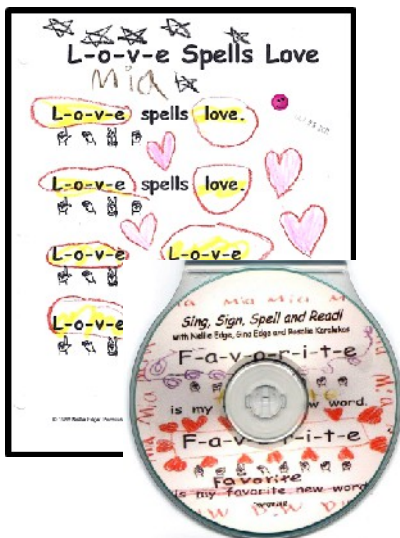 L-o-v-e Spells Love
Mia
L-o-v-e spells love.
L-o-v-e spells love.
L-o-v-e L-o-v-e
L-o-v-e
Mia Mia M
Sing, Sign, Spell and Read!
with Nellie Edge, Gina Edge and Rosalie Karalekas
F-a-v-o-r-i-t-e
is my new word.
F-a-v-r-i-t-e
Favorite
is my favorite new word
Mia
Mia